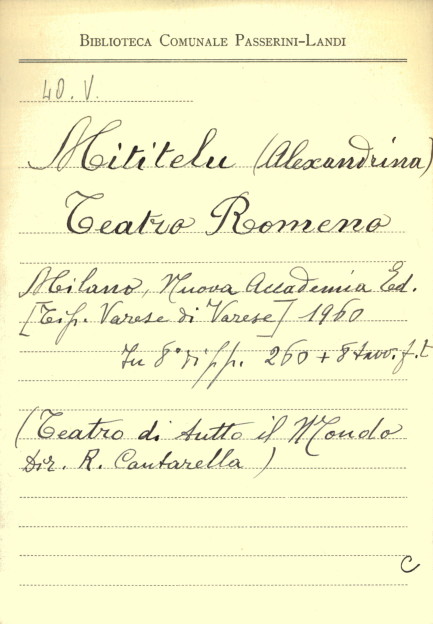 BIBLIOTECA COMUNALE PASSERINI-LANDI
40. V.
Mititelu (Alexandrina)
Teatro Romeno
Milano, Nuova Accademia Ed.
[Tip. Varese di Varese] 1960
In 8° di pp. 260 + 8 tavv. f. t
(Teatro di tutto il Mondo
Dir. R. Cantarella)
C